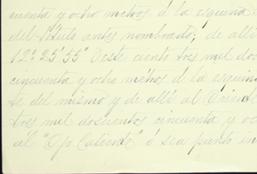 menta y ocho metros á la esquina
del título antes nombrado; de allí
12° 25' 55" Oeste ciento tres mil do
cincuenta y ocho metros á la esquin
te del mismo y de allí al Orien
tres mil doscientos cincuenta y oc
al "Ojo Caliente" ó sea punto in